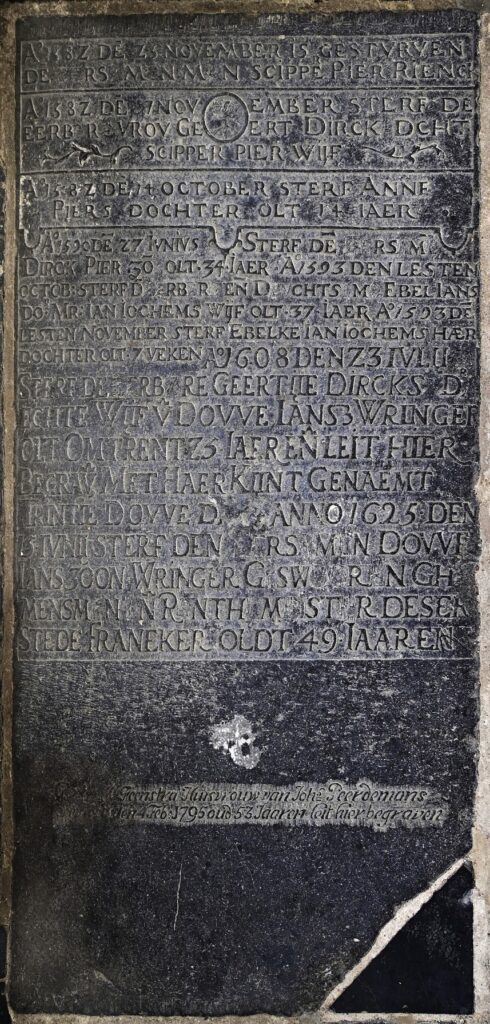 Aº 1582 DE 25 NOVEMBER IS GESTURVEN
DE RS M N M N SCIPPE PIER RIENC
Aº 1582 DE 7 NOV EMBER STERF DE
EERB R VROV GE ERT DIRCK DCHT
SCIPPER PIER WIJF
Aº 1582 DE 14 OCTOBER STERF ANNE
PIERS DOCHTER OLT 14 IAER
Aº 1590 DE 27 IVNIVS STERF DE RS M
DIRCK PIER ZO OLT 34 IAER Aº 1593 DEN LESTEN
OCTOB STERF D RB R EN D CHTS M EBEL IANS
DO MR IAN IOCHEMS WIJF OLT 37 IAER Aº 1593 DE
LESTEN NOVEMBER STERF EBELKE IAN IOCHEMS HÆR
DOCHTER OLT 7 VEKEN Aº 1608 DEN 23 IVLII
STERF DE ERB RE GEERTIIE DIRCKS D
ECHTE WIJF V̄ DOVVE IANS3 WRINGER
OLT OMTRENT 25 IAER EN̄ LEIT HIER
BEGRAV̄ MET HAER KIINT GENAEMT
TRINTIE DOVVE D ANNO 1625 DEN
5 IVNII STERF DEN RS M N DOVVE
IANS ZOON WRINGER GESWOREN GE
MENSMEN EN̄ RENTH MEISTER DESER
STEDE FRANEKER OLDT 49 IAAREN
Feenstra Huisvrouw van Johs Peerdemans
den Feb: 1795 oud 53 Jaaren leit hier begraven